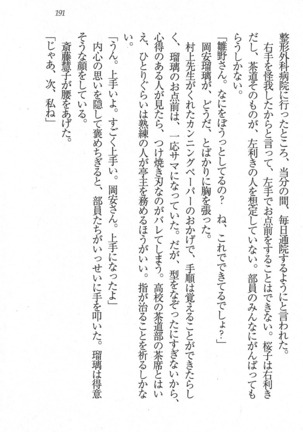 191
整形外科病院に行ったところ、当分の間、毎日通院するようにと言われた。
右手を怪我したからと言って、左手でお点前をすることはできない。桜子は右利き
だし、茶道そのものが、左利きの人を想定していない。部員のみんなにがんばっても
らうしかない。
「雛野さん。なにをぼうっとしてるの？　ね、これでできてるでしょ？」
岡安瑠璃が、どうだ、とばかりに胸を張った。
村上先生がくれたカンニングペーパーのおかげで、手順は覚えることができたらし
く、瑠璃のお点前は、一応サマになっていた。だが、型をなぞったにすぎないから、
心得のある人が見たら、つけ焼き刃なのがバレてしまう。高校の茶道部の茶席とはい
え、ひとりぐらいは熟練の人が亭主を務めるほうがいい。指が治ることを祈るしかな
い。
「うん。上手いよ。すごく上手い。岡安さん。上手になったよ」
内心の思いを隠して褒めちぎると、部員たちがいっせいに手を叩いた。瑠璃は得意
そうな顔をしている。
斎藤慧子が腰をあげた。
「じゃあ、次、私ね」